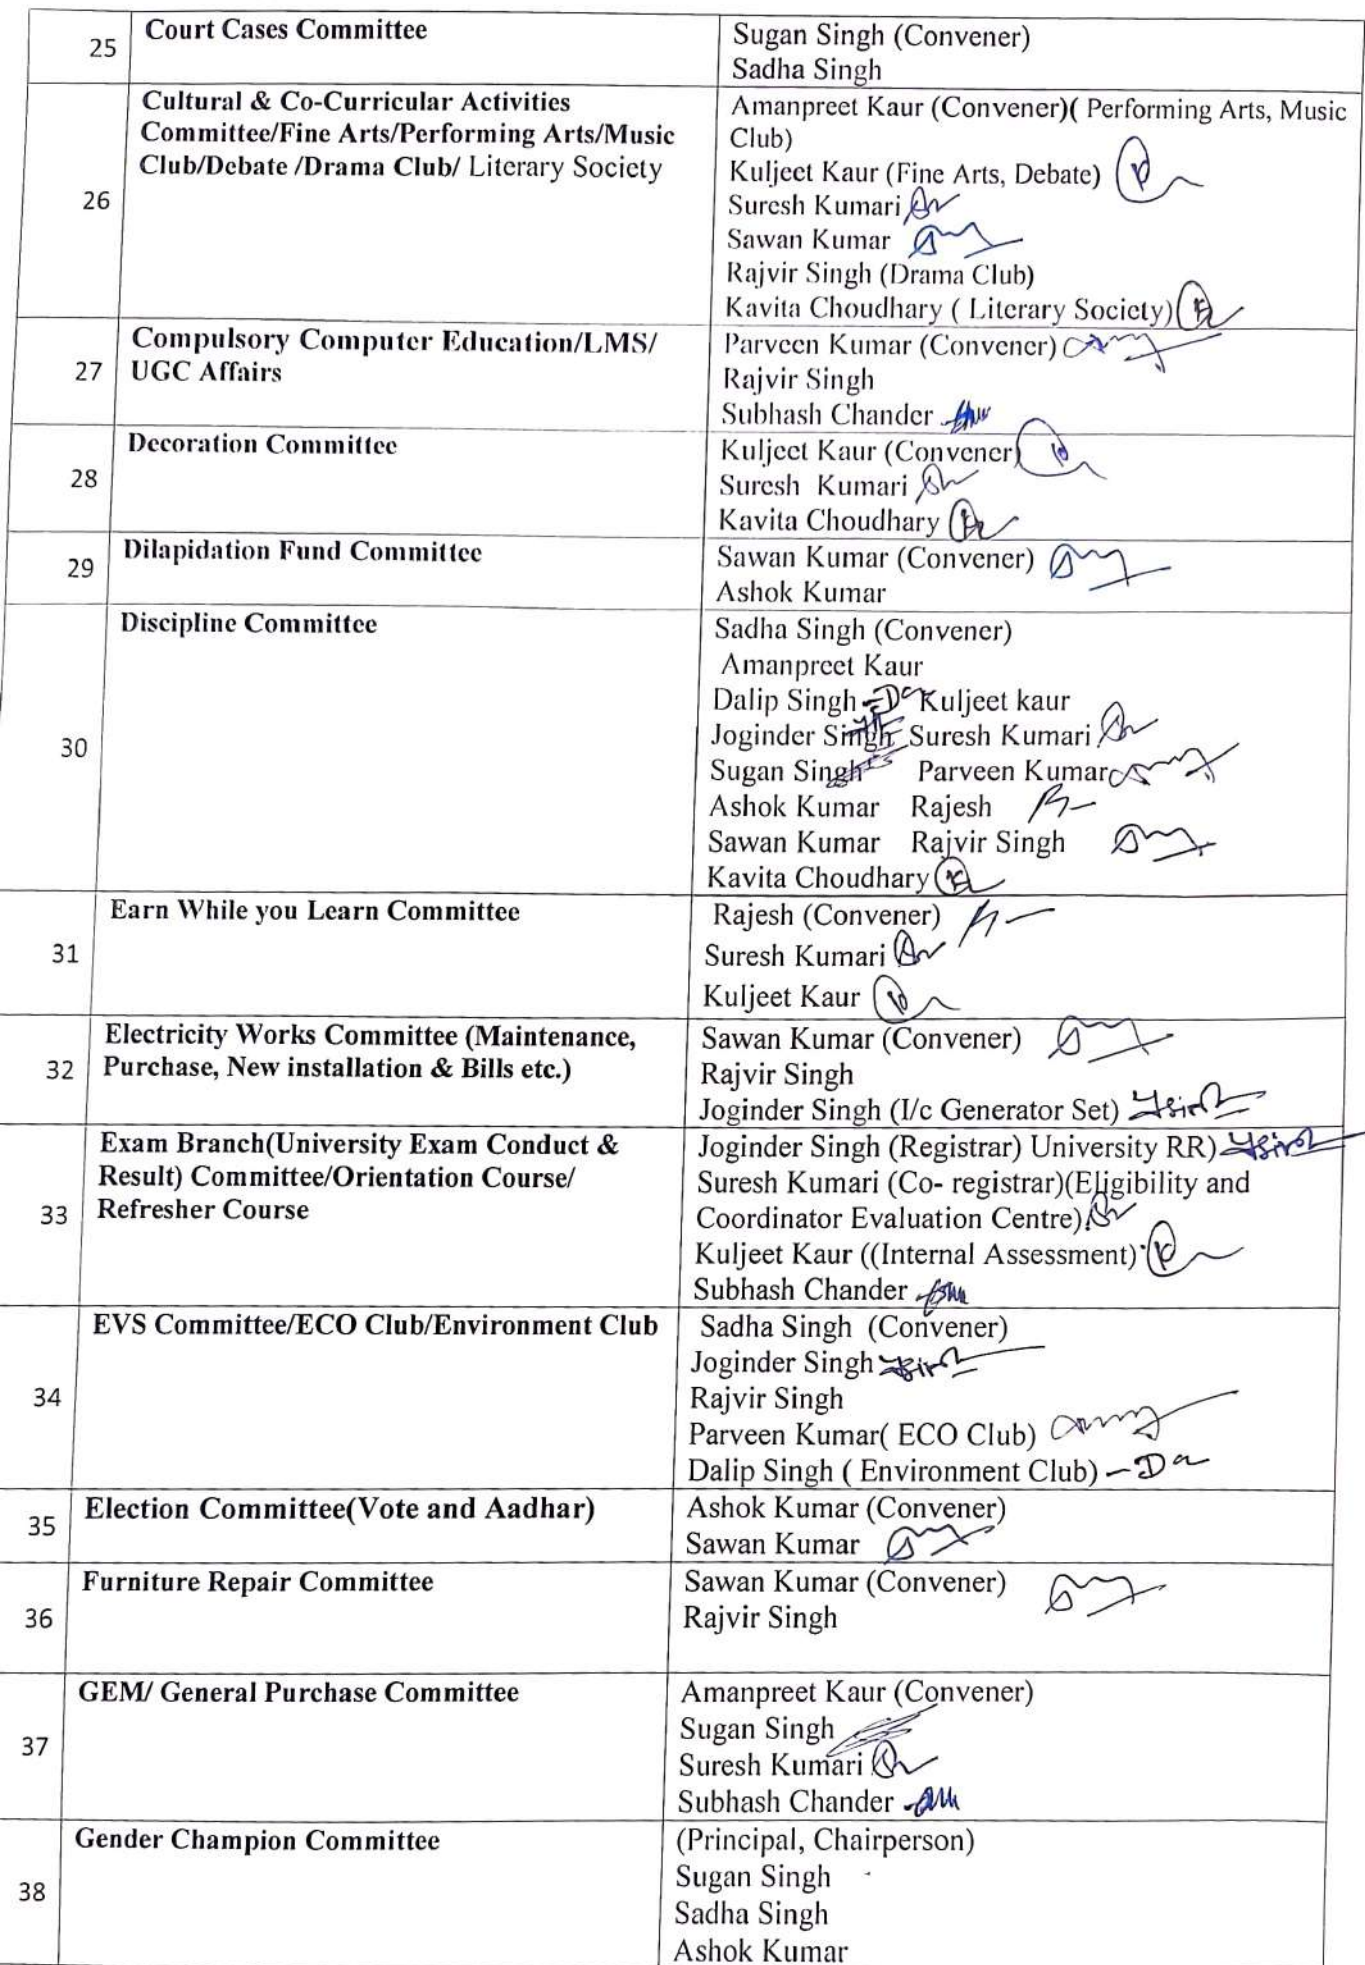 25
Court Cases Committee
Sugan Singh (Convener)
Sadha Singh
26
Cultural & Co-Curricular Activities
Committee/Fine Arts/Performing Arts/Music
Club/Debate /Drama Club/ Literary Society
Amanpreet Kaur (Convener)( Performing Arts, Music
Club)
Kuljeet Kaur (Fine Arts, Debate)
Suresh Kumari
Sawan Kumar
Rajvir Singh (Drama Club)
Kavita Choudhary ( Literary Society)
27
Compulsory Computer Education/LMS/
UGC Affairs
Parveen Kumar (Convener)
Rajvir Singh
Subhash Chander
28
Decoration Committee
Kuljeet Kaur (Convener)
Suresh Kumari
Kavita Choudhary
29
Dilapidation Fund Committee
Sawan Kumar (Convener)
Ashok Kumar
30
Discipline Committee
Sadha Singh (Convener)
Amanpreet Kaur
Dalip Singh Kuljeet kaur
Joginder Singh Suresh Kumari
Sugan Singh Parveen Kumar
Ashok Kumar Rajesh
Sawan Kumar Rajvir Singh
Kavita Choudhary
31
Earn While you Learn Committee
Rajesh (Convener)
Suresh Kumari
Kuljeet Kaur
32
Electricity Works Committee (Maintenance,
Purchase, New installation & Bills etc.)
Sawan Kumar (Convener)
Rajvir Singh
Joginder Singh (I/c Generator Set)
33
Exam Branch(University Exam Conduct &
Result) Committee/Orientation Course/
Refresher Course
Joginder Singh (Registrar) University RR)
Suresh Kumari (Co- registrar)(Eligibility and
Coordinator Evaluation Centre)
Kuljeet Kaur ((Internal Assessment)
Subhash Chander
34
EVS Committee/ECO Club/Environment Club
Sadha Singh (Convener)
Joginder Singh
Rajvir Singh
Parveen Kumar( ECO Club)
Dalip Singh ( Environment Club)
35
Election Committee(Vote and Aadhar)
Ashok Kumar (Convener)
Sawan Kumar
36
Furniture Repair Committee
Sawan Kumar (Convener)
Rajvir Singh
37
GEM/ General Purchase Committee
Amanpreet Kaur (Convener)
Sugan Singh
Suresh Kumari
Subhash Chander
38
Gender Champion Committee
(Principal, Chairperson)
Sugan Singh
Sadha Singh
Ashok Kumar